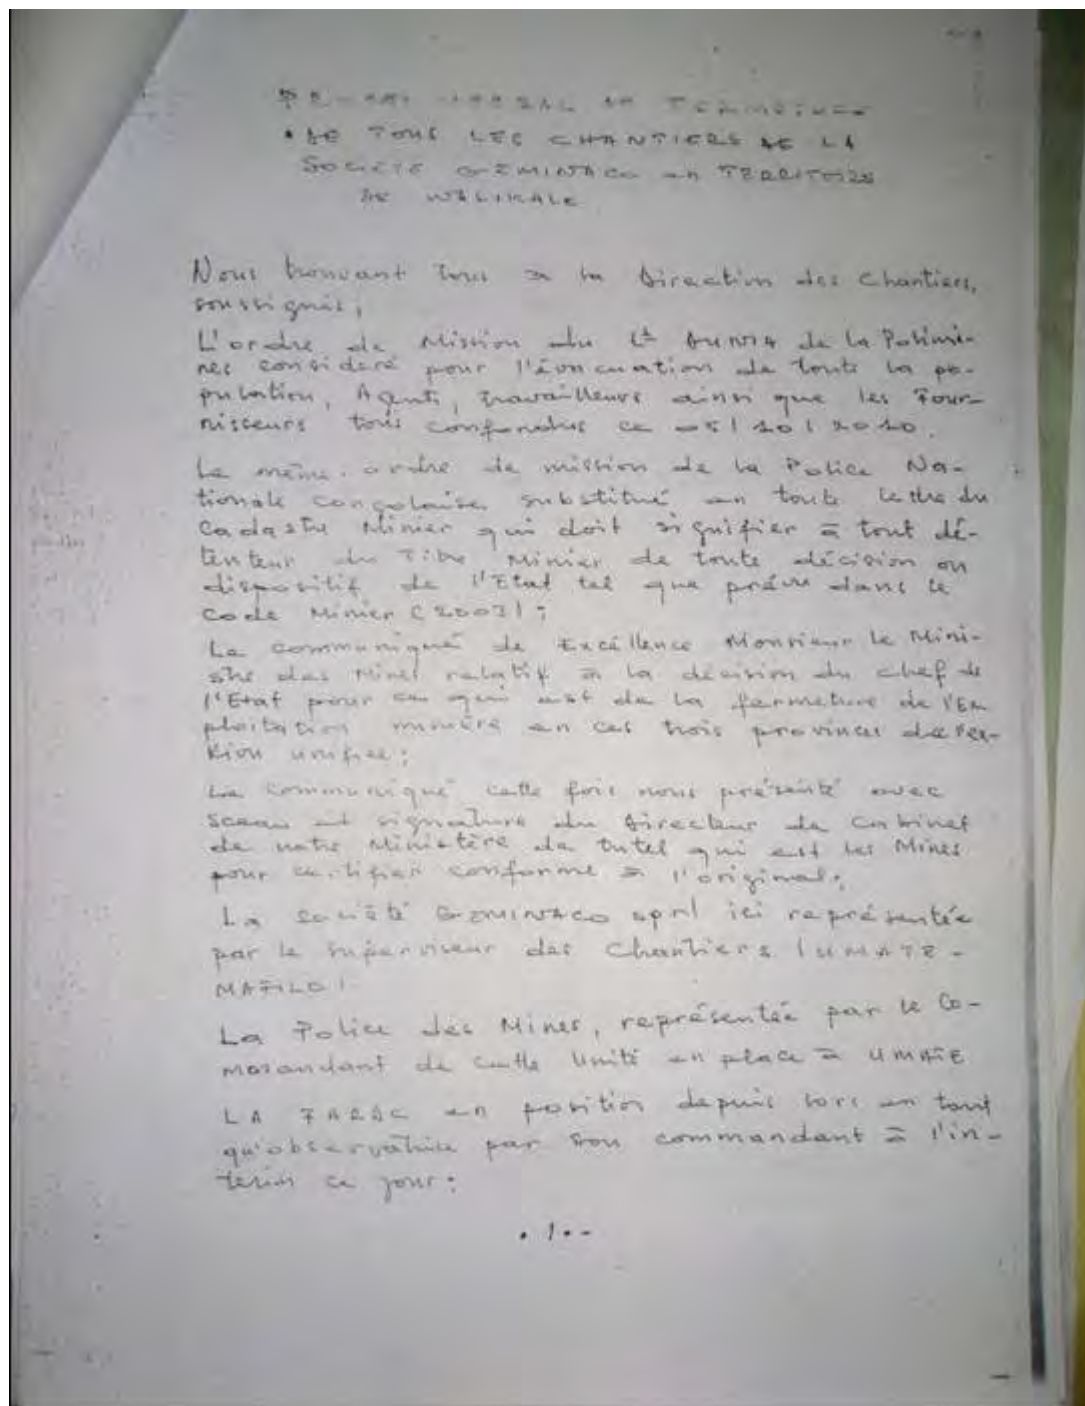 VERBAL DE
DE TOUS LES CHANTIERS DE LA
SOCIETE GEMINACO en TERRITOIRE
DE WALIKALE
Nous trouvant tous à la Direction des Chantiers,
soussignés,
L'ordre de Mission du Lt de la Polimi-
nes consideré pour l'évacuation de toute la po-
pulation, Agents, travailleurs ainsi que les Four-
nisseurs tous confondus ce 05/10/2010.
Le même ordre de mission de la Police Na-
tionale congolaise substitué en toute lettre du
Cadastre Minier qui doit signifier à tout dé-
tenteur du Titre Minier de toute décision ou
dispositif de l'Etat tel que prévu dans le
Code Minier (2003);
Le communiqué de Excéllence Monsieur le Mini-
stre des Mines relatif à la décision du chef de
l'Etat pour ce qui est de la fermeture de l'Ex
ploitation minière en ces trois provinces de
unifiee;
Le Communiqué cette fois nous présenté avec
Sceau et signature du Directeur de Cabinet
de notre Ministère de tutel qui est les Mines
pour certifier conforme à l'original;
La société GEMINACO sprl ici représentée
par le superviseur des Chantiers (UMATE -
MAFILO).
La Police des Mines, représentée par le Co-
mmandant de cette Unité en place à UMATE
LA FARDC en position depuis lors en tant
qu'observatrice par son commandant à l'in-
terim ce jour:
. / . -